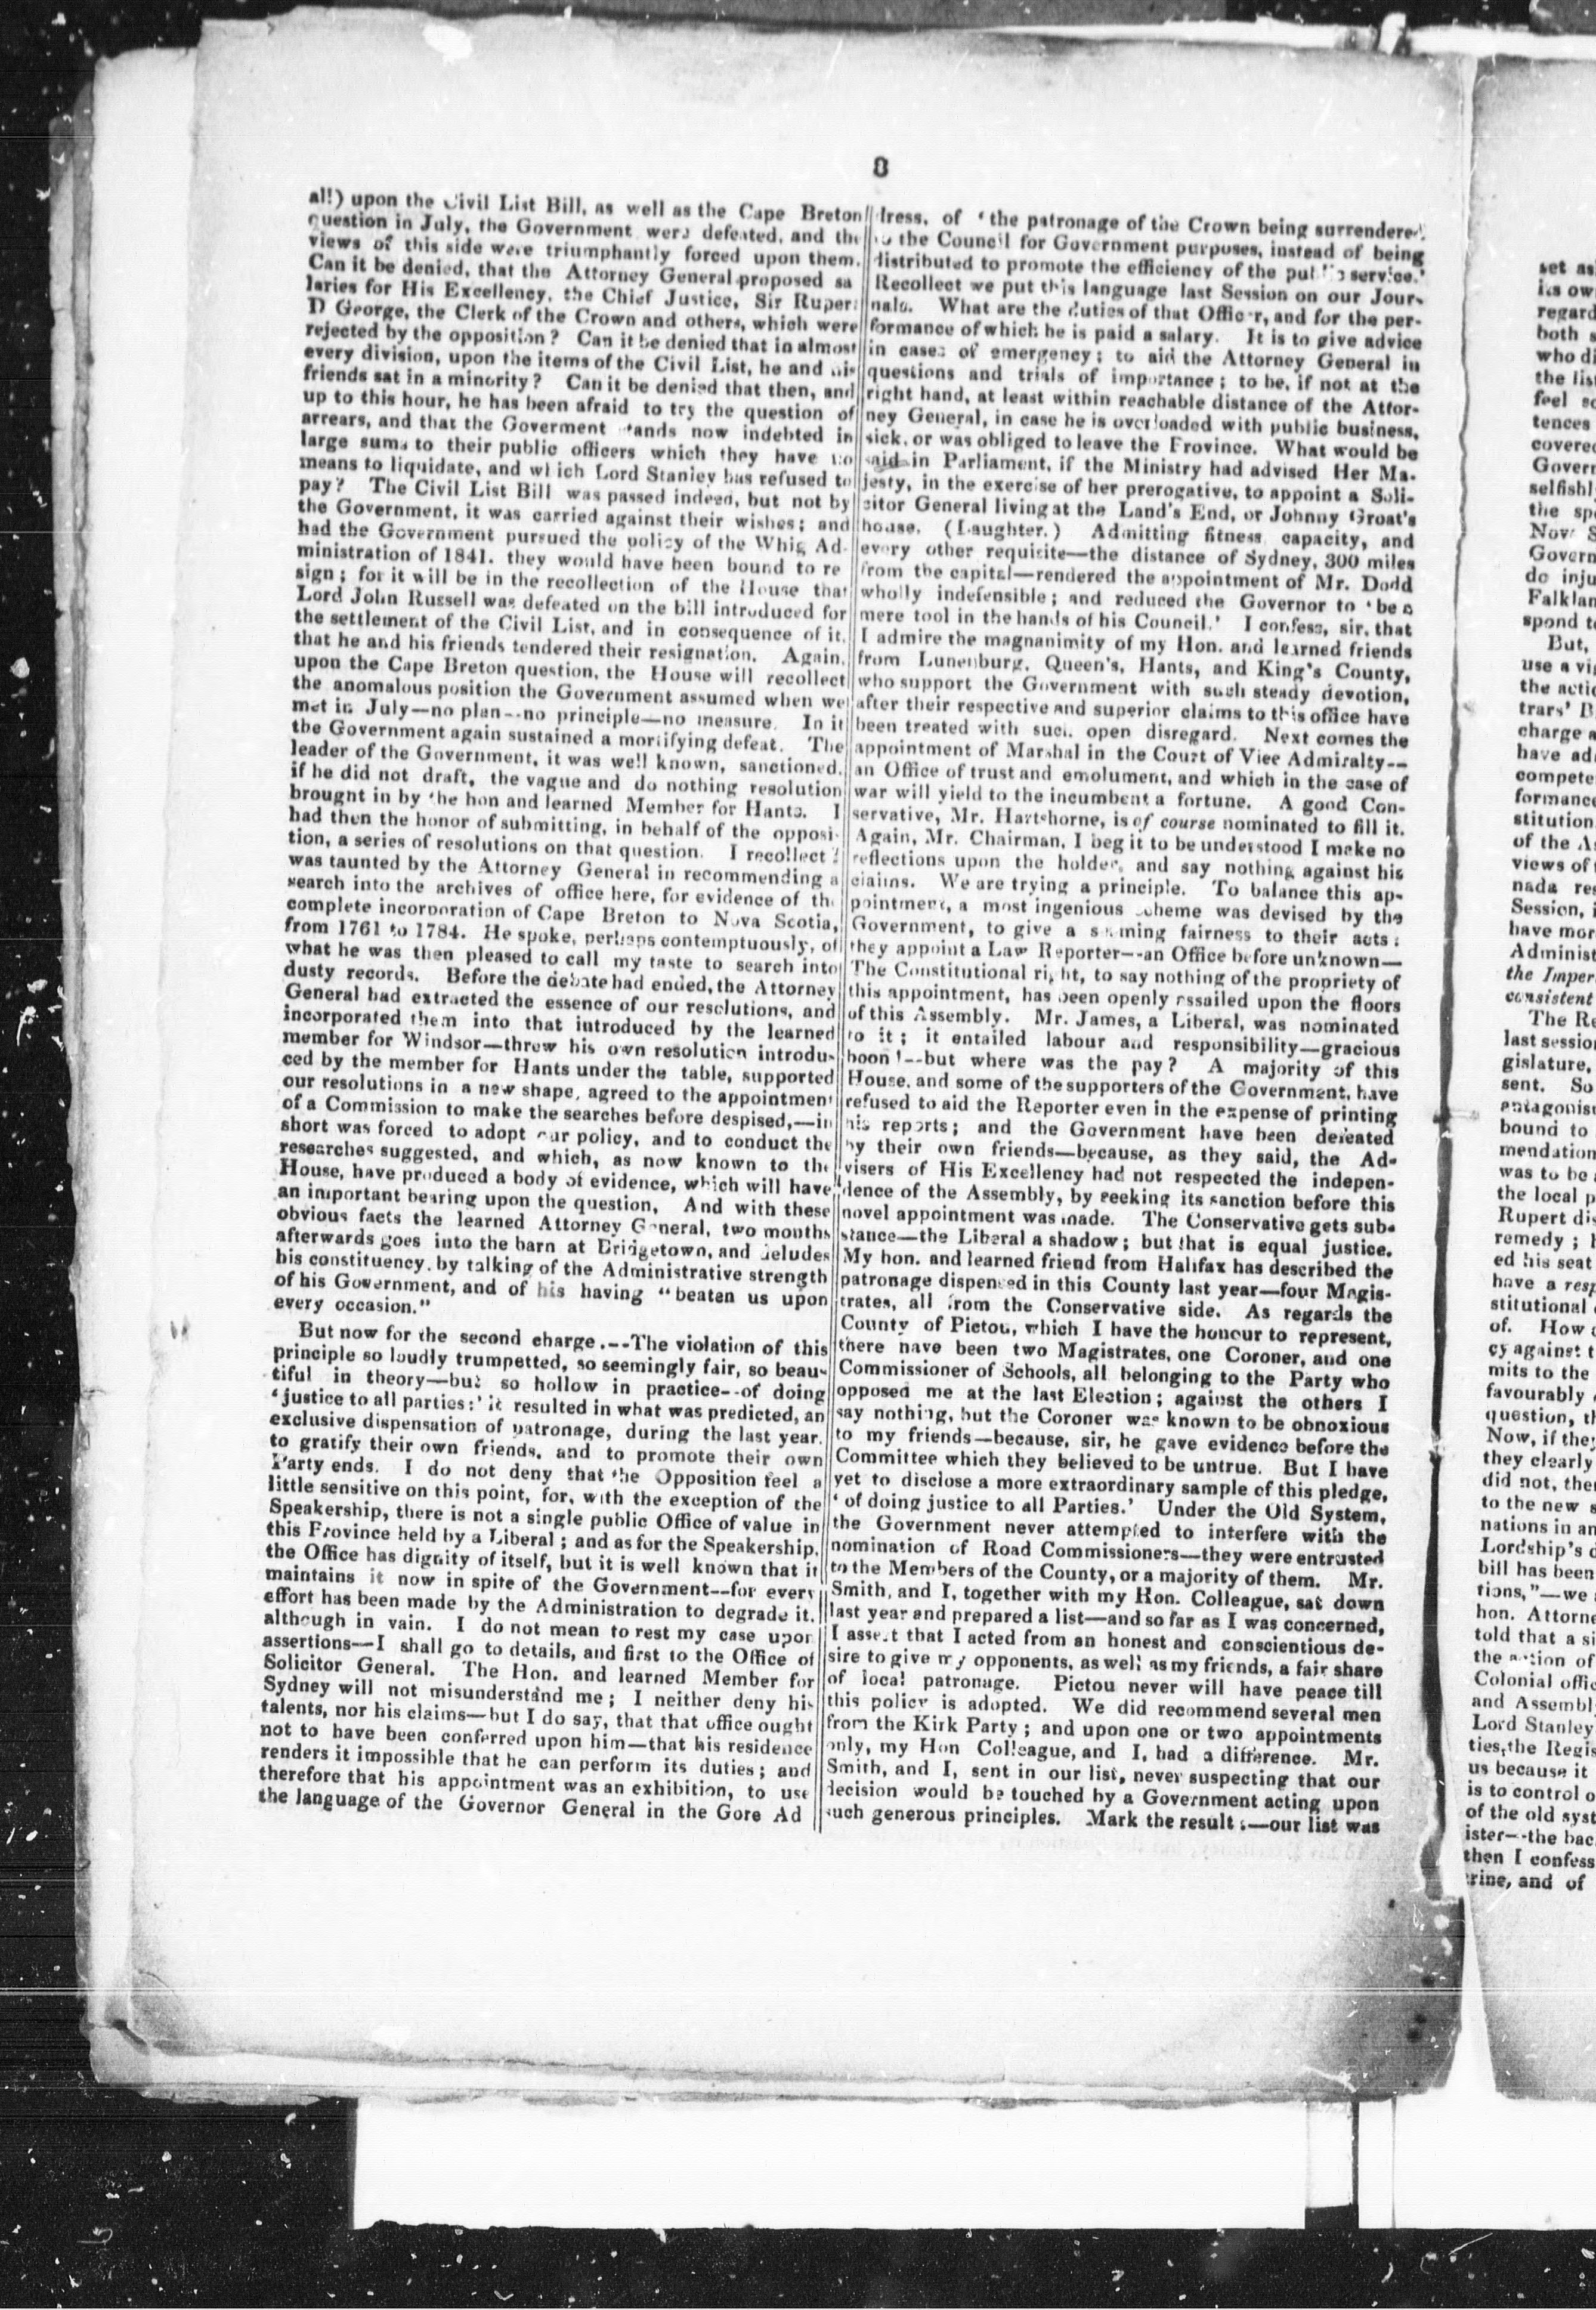 8
al!) upon the Civil List Bill, as well as the Cape Breton
question in July, the Government were defeated, and the
views of this side were triumphantly forced upon them.
Can it be denied, that the Attorney General proposed sa
laries for His Excellency, the Chief Justice, Sir Rupert
D George, the Clerk of the Crown and others, which were
rejected by the opposition? Can it be denied that in almost
every division, upon the items of the Civil List, he and his
friends sat in a minority? Can it be denied that then, and
up to this hour, he has been afraid to try the question of
arrears, and that the Goverment stands now indebted in
large sums to their public officers which they have no
means to liquidate, and which Lord Stanley has refused to
pay? The Civil List Bill was passed indeed, but not by
the Government, it was carried against their wishes; and
had the Government pursued the policy of the Whig Ad-
ministration of 1841. they would have been bound to re
sign; for it will be in the recollection of the House that
Lord John Russell was defeated on the bill introduced for
the settlement of the Civil List, and in consequence of it,
that he and his friends tendered their resignation. Again,
upon the Cape Breton question, the House will recollect
the anomalous position the Government assumed when we
met in July—no plan--no principle—no measure. In it
the Government again sustained a mortifying defeat. The
leader of the Government, it was well known, sanctioned,
if he did not draft, the vague and do nothing resolution
brought in by the hon and learned Member for Hants. I
had then the honor of submitting, in behalf of the opposi-
tion, a series of resolutions on that question. I recollect I
was taunted by the Attorney General in recommending a
search into the archives of office here, for evidence of the
complete incorporation of Cape Breton to Nova Scotia,
from 1761 to 1784. He spoke, perhaps contemptuously, of
what he was then pleased to call my taste to search into
dusty records. Before the debate had ended, the Attorney
General had extracted the essence of our resolutions, and
incorporated them into that introduced by the learned
member for Windsor—threw his own resolution introdu-
ced by the member for Hants under the table, supported
our resolutions in a new shape, agreed to the appointment
of a Commission to make the searches before despised,—in
short was forced to adopt our policy, and to conduct the
researches suggested, and which, as now known to the
House, have produced a body of evidence, which will have
an important bearing upon the question, And with these
obvious facts the learned Attorney General, two months
afterwards goes into the barn at Bridgetown, and deludes
his constituency, by talking of the Administrative strength
of his Government, and of his having "beaten us upon
every occasion."
But now for the second charge.--The violation of this
principle so loudly trumpetted, so seemingly fair, so beau-
tiful in theory—but so hollow in practice--of doing
'justice to all parties:' it resulted in what was predicted, an
exclusive dispensation of patronage, during the last year,
to gratify their own friends, and to promote their own
Party ends. I do not deny that the Opposition feel a
little sensitive on this point, for, with the exception of the
Speakership, there is not a single public Office of value in
this Province held by a Liberal; and as for the Speakership,
the Office has dignity of itself, but it is well known that it
maintains it now in spite of the Government--for every
effort has been made by the Administration to degrade it,
although in vain. I do not mean to rest my case upon
assertions—I shall go to details, and first to the Office of
Solicitor General. The Hon. and learned Member for
Sydney will not misunderstand me; I neither deny his
talents, nor his claims—but I do say, that that office ought
not to have been conferred upon him—that his residence
renders it impossible that he can perform its duties; and
therefore that his appointment was an exhibition, to use
the language of the Governor General in the Gore Ad
dress, of 'the patronage of the Crown being surrendered
to the Council for Government purposes, instead of being
distributed to promote the efficiency of the public service.'
Recollect we put this language last Session on our Jour-
nals. What are the duties of that Officer, and for the per-
formance of which he is paid a salary. It is to give advice
in cases of emergency; to aid the Attorney General in
questions and trials of importance; to be, if not at the
right hand, at least within reachable distance of the Attor-
ney General, in case he is overloaded with public business,
sick, or was obliged to leave the Province. What would be
said in Parliament, if the Ministry had advised Her Ma-
jesty, in the exercise of her prerogative, to appoint a Soli-
citor General living at the Land's End, or Johnny Groat's
house. (Laughter.) Admitting fitness capacity, and
every other requisite—the distance of Sydney, 300 miles
from the capital—rendered the appointment of Mr. Dodd
wholly indefensible; and reduced the Governor to 'be a
mere tool in the hands of his Council.' I confess, sir, that
I admire the magnanimity of my Hon. and learned friends
from Lunenburg, Queen's, Hants, and King's County,
who support the Government with such steady devotion,
after their respective and superior claims to this office have
been treated with such open disregard. Next comes the
appointment of Marshal in the Court of Vice Admiralty--
an Office of trust and emolument, and which in the case of
war will yield to the incumbent a fortune. A good Con-
servative, Mr. Hartshorne, is of course nominated to fill it.
Again, Mr. Chairman, I beg it to be understood I make no
reflections upon the holder, and say nothing against his
claims. We are trying a principle. To balance this ap-
pointment, a most ingenious scheme was devised by the
Government, to give a seeming fairness to their acts:
they appoint a Law Reporter--an Office before unknown—
The Constitutional right, to say nothing of the propriety of
this appointment, has been openly assailed upon the floors
of this Assembly. Mr. James, a Liberal, was nominated
to it; it entailed labour and responsibility—gracious
boon!--but where was the pay? A majority of this
House, and some of the supporters of the Government, have
refused to aid the Reporter even in the expense of printing
his reports; and the Government have been defeated
by their own friends—because, as they said, the Ad-
visers of His Excellency had not respected the indepen-
dence of the Assembly, by seeking its sanction before this
novel appointment was made. The Conservative gets sub-
stance—the Liberal a shadow; but that is equal justice.
My hon. and learned friend from Halifax has described the
patronage dispensed in this County last year—four Magis-
trates, all from the Conservative side. As regards the
County of Pictou, which I have the honour to represent,
there have been two Magistrates, one Coroner, and one
Commissioner of Schools, all belonging to the Party who
opposed me at the last Election; against the others I
say nothing, but the Coroner was known to be obnoxious
to my friends—because, sir, he gave evidence before the
Committee which they believed to be untrue. But I have
yet to disclose a more extraordinary sample of this pledge,
'of doing justice to all Parties.' Under the Old System,
the Government never attempted to interfere with the
nomination of Road Commissioners—they were entrusted
to the Members of the County, or a majority of them. Mr.
Smith, and I, together with my Hon. Colleague, sat down
last year and prepared a list—and so far as I was concerned,
I assert that I acted from an honest and conscientious de-
sire to give my opponents, as well as my friends, a fair share
of local patronage. Pictou never will have peace till
this policy is adopted. We did recommend several men
from the Kirk Party; and upon one or two appointments
only, my Hon Colleague, and I, had a difference. Mr.
Smith, and I, sent in our list, never suspecting that our
decision would be touched by a Government acting upon
such generous principles. Mark the result:—our list was
set as
its ow
regard
both s
who di
the lis
feel so
tences
covere
Govern
selfish
the spe
Nov S
Govern
do inju
Falklan
spond t
But,
use a vi
the acti
trars' B
charge a
have ad
compete
formance
stitution
of the A
views of
nada res
Session, i
have mor
Administ
the Imper
consistent
The Re
last session
gislature,
sent. So
antagonis
bound to
mendation
was to be
the local p
Rupert dis
remedy; h
ed his seat
have a resp
stitutional
of. How
cy against t
mits to the
favourably
question, th
Now, if they
they clearly
did not, then
to the new s
nations in an
Lordship's d
bill has been
tions,"—we
hon. Attorne
told that a si
the action of
Colonial offic
and Assembl
Lord Stanley
ties, the Regis
us because it
is to control o
of the old syst
ister--the bac
then I confess
trine, and of